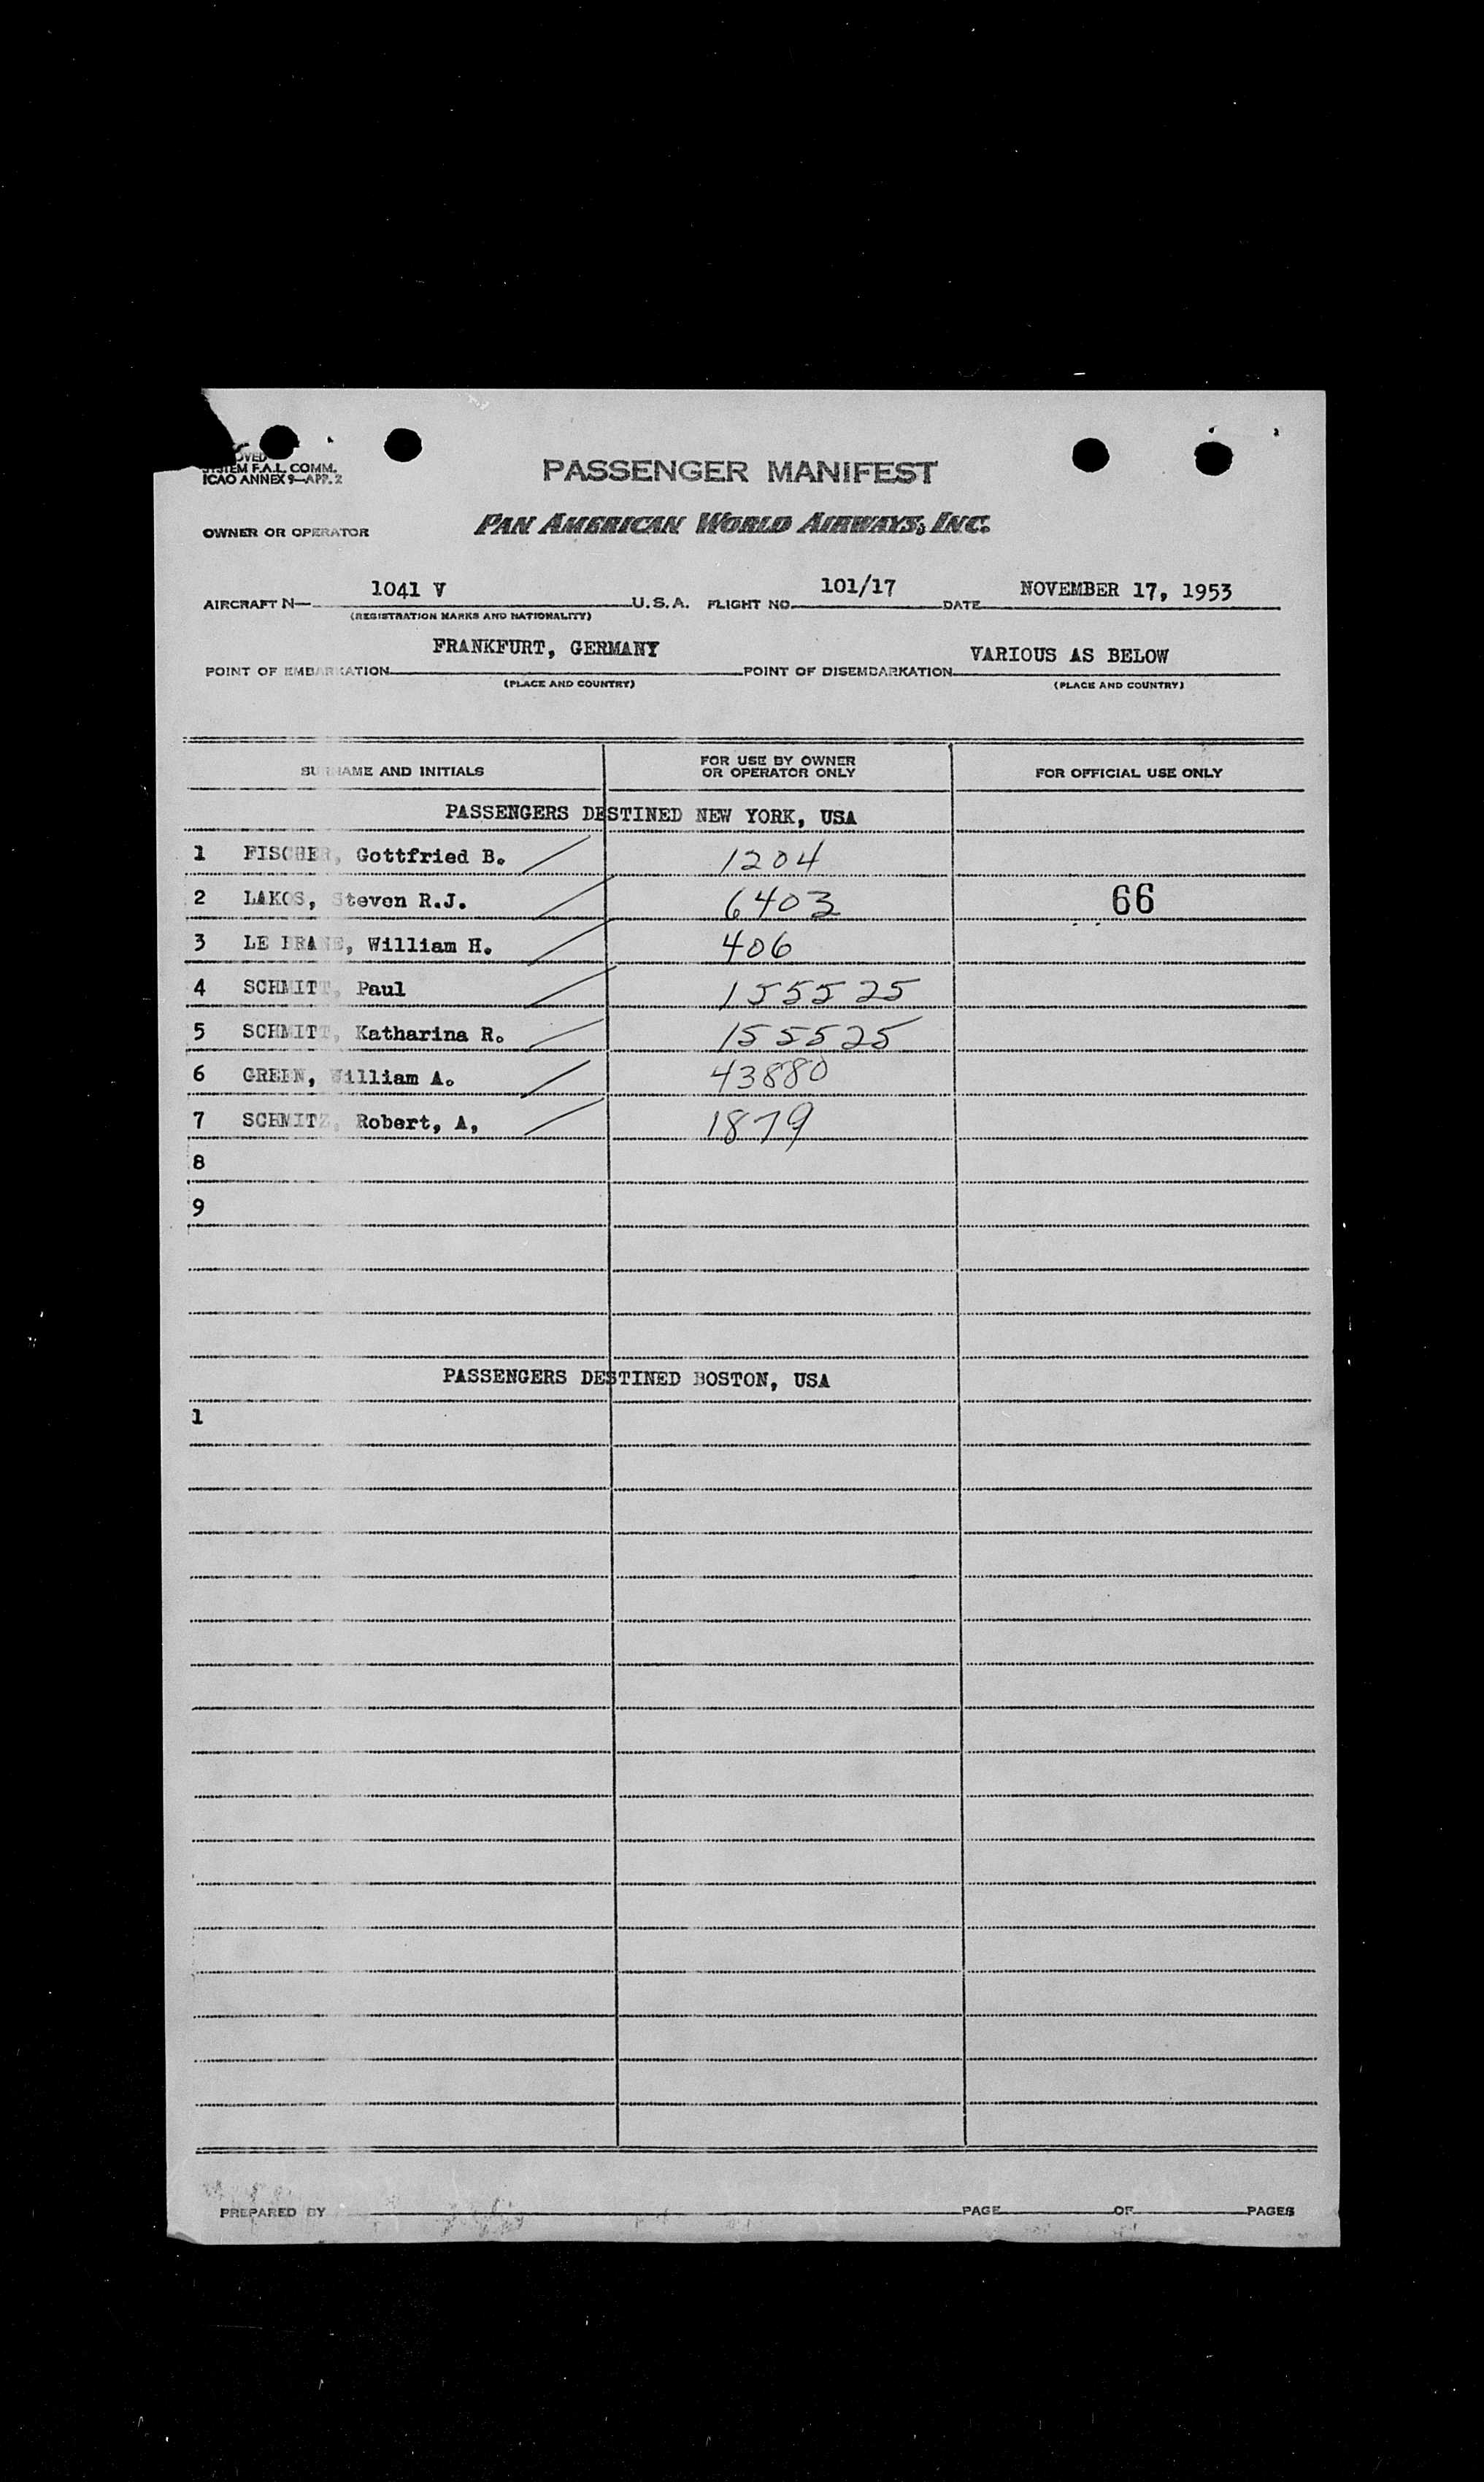 SYSTEM F.A.L. COMM.
ICAO ANNEX 9—APP. 2
PASSENGER MANIFEST
OWNER OR OPERATOR PAN AMERICAN WORLD AIRWAYS, INC.
AIRCRAFT N— 1041 V U.S.A. FLIGHT NO. 101/17 DATE NOVEMBER 17, 1953
(REGISTRATION MARKS AND NATIONALITY)
POINT OF EMBARKATION FRANKFURT, GERMANY POINT OF DISEMBARKATION VARIOUS AS BELOW
(PLACE AND COUNTRY) (PLACE AND COUNTRY)
SURNAME AND INITIALS FOR USE BY OWNER OR OPERATOR ONLY FOR OFFICIAL USE ONLY
PASSENGERS DESTINED NEW YORK, USA
1 FISCHER, Gottfried B. 1204
2 LAKOS, Steven R.J. 6403 66
3 LE BRANE, William H. 406
4 SCHMITT, Paul 155525
5 SCHMITT, Katharina R. 155525
6 GREEN, William A. 43880
7 SCHMITZ, Robert, A, 1879
8
9
PASSENGERS DESTINED BOSTON, USA
1
PREPARED BY PAGE OF PAGES